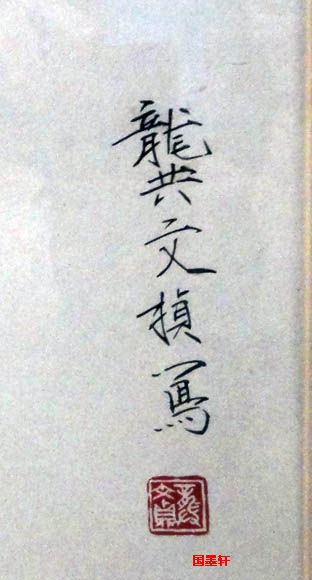 龔文楨寫
国墨轩